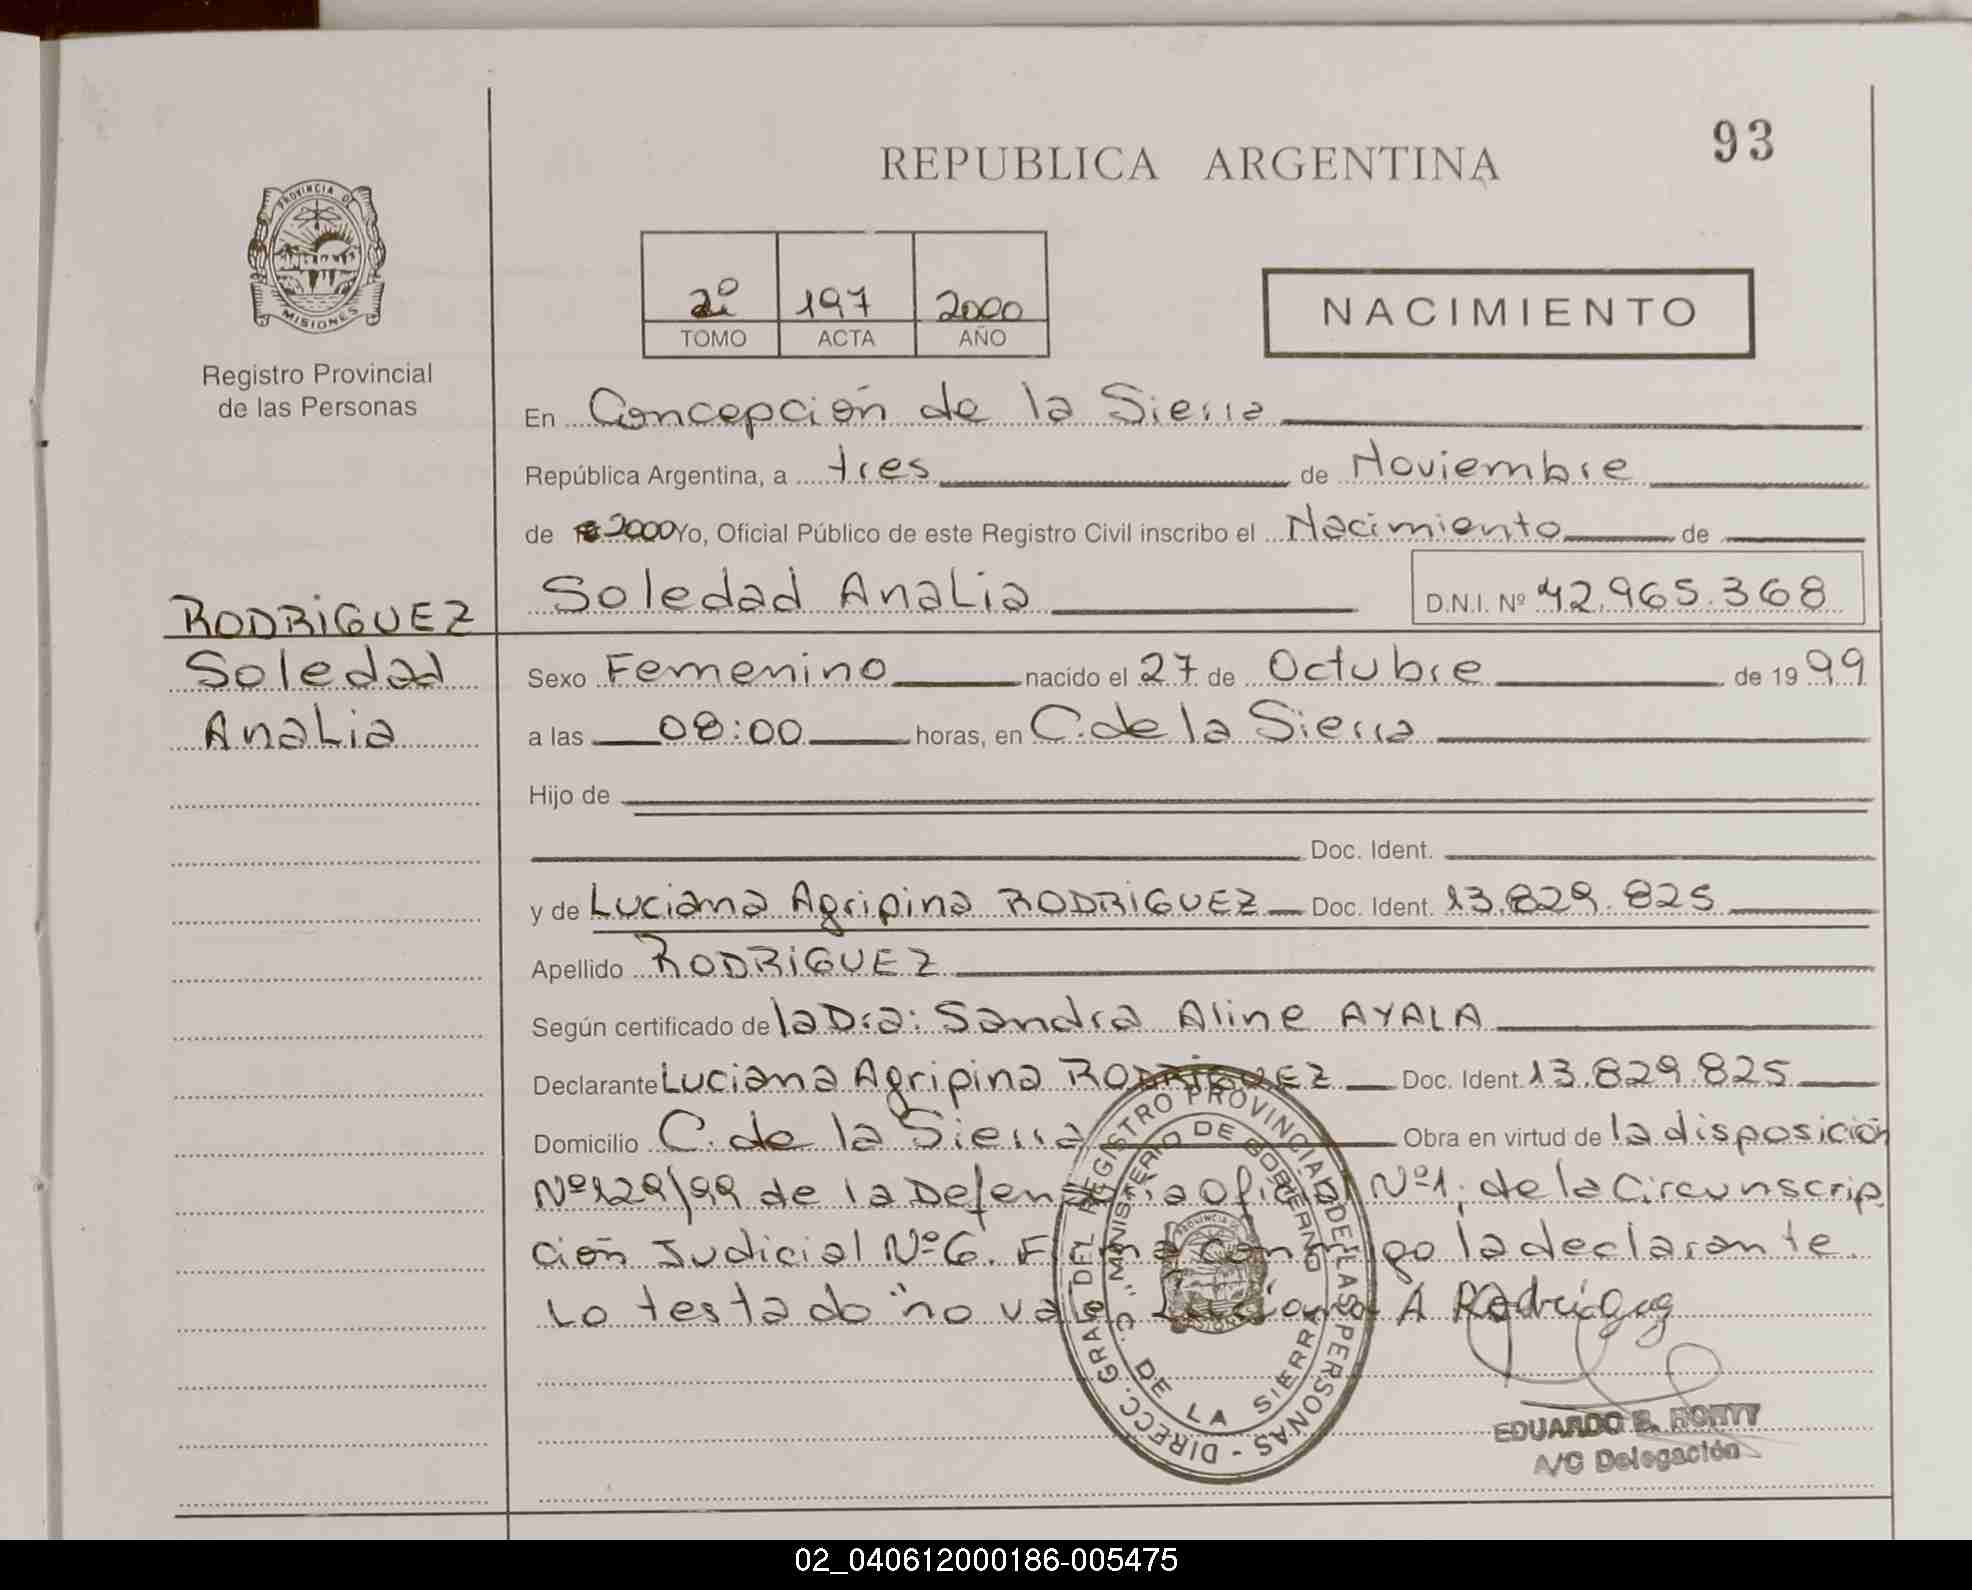 93
REPUBLICA ARGENTINA
PROVINCIA DE
MISIONES
Registro Provincial
de las Personas
2º 197 2000
TOMO ACTA AÑO
NACIMIENTO
En Concepción de la Sierra
República Argentina, a tres de Noviembre
de 2000 Yo, Oficial Público de este Registro Civil inscribo el Nacimiento de
Soledad Analia D.N.I. Nº 42.965.368
RODRIGUEZ
Soledad
Analia
Sexo Femenino nacido el 27 de Octubre de 19 99
a las 08:00 horas, en C. de la Sierra
Hijo de
Doc. Ident.
y de Luciana Agripina RODRIGUEZ Doc. Ident. 13.829.825
Apellido RODRIGUEZ
Según certificado de la Dra: Sandra Aline AYALA
Declarante Luciana Agripina RODRIGUEZ Doc. Ident. 13.829.825
Domicilio C. de la Sierra Obra en virtud de la disposición
Nº 129/99 de la Defensoria Oficial Nº 1, de la Circunscrip
ción Judicial Nº 6. Firma conmigo la declarante
Lo testado "no vale Luciana A Rodriguez
DIRECC. GRAL. DEL REGISTRO PROVINCIAL DE LAS PERSONAS -
MINISTERIO DE GOBIERNO
"C. DE LA SIERRA
EDUARDO
A/C Delegación
02_040612000186-005475